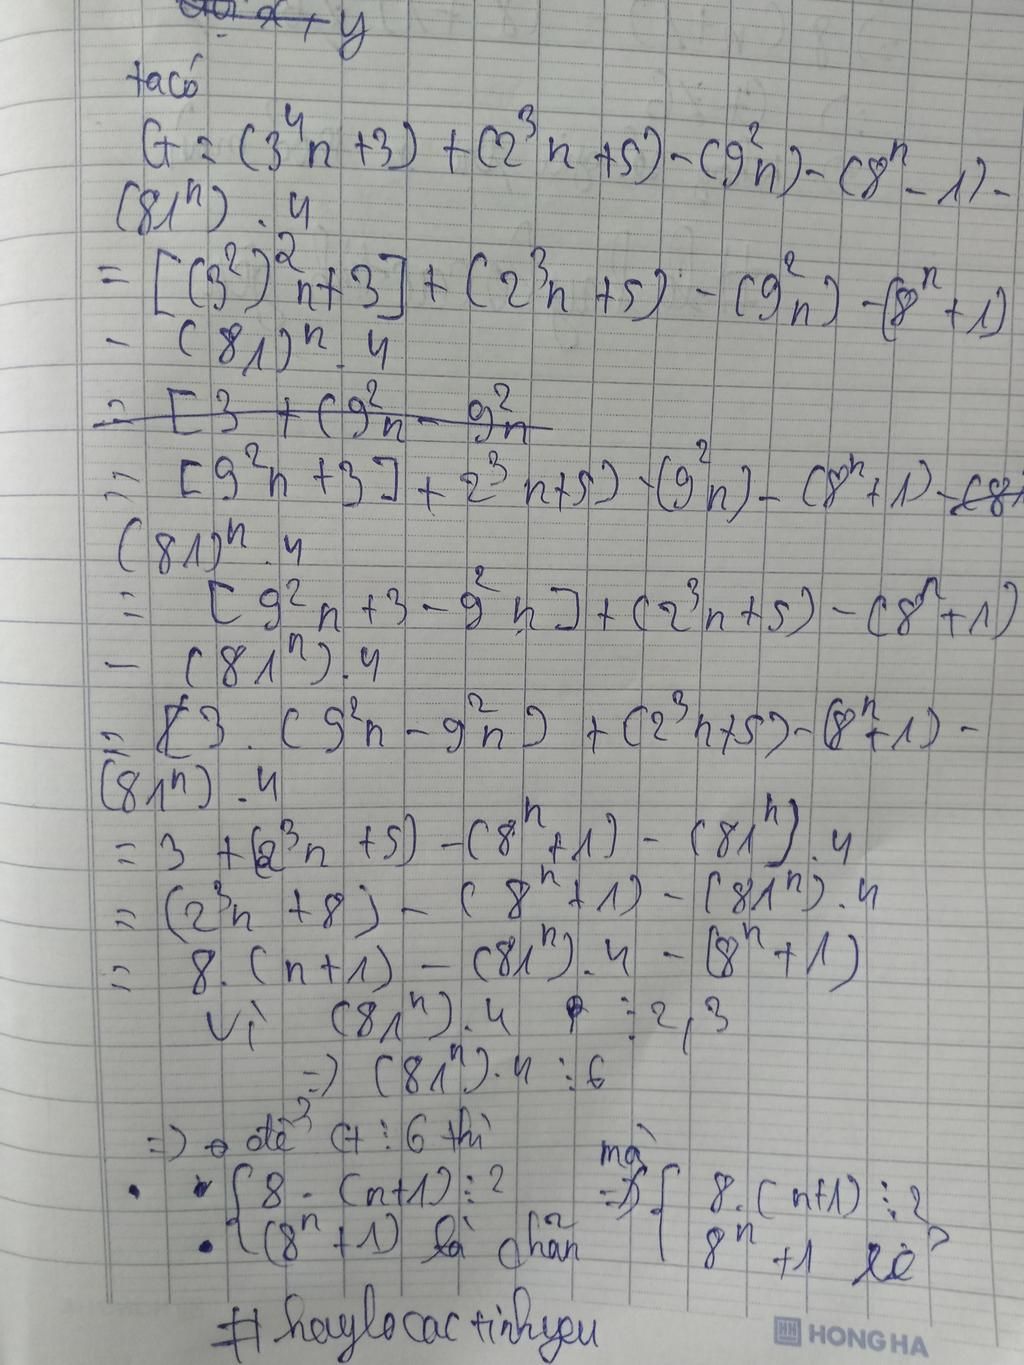 x + y
ta có
G = (3⁴n + 3) + (2³n + 5) - (9²n) - (8ⁿ - 1) -
(81ⁿ) . 4
= [(3²)²n + 3] + (2³n + 5) - (9²n) - (8ⁿ + 1)
- (81)ⁿ . 4
= [3 + (9²n - 9²n
= [9²n + 3] + 2³n + 5) - (9²n) - (8ⁿ + 1) - (81
(81)ⁿ . 4
= [9²n + 3 - 9²n] + (2³n + 5) - (8ⁿ + 1)
- (81ⁿ) . 4
= [3 . (9²n - 9²n) + (2³n + 5) - (8ⁿ + 1) -
(81ⁿ) . 4
= 3 + (2³n + 5) - (8ⁿ + 1) - (81ⁿ) . 4
= (2³n + 8) - (8ⁿ + 1) - (81ⁿ) . 4
= 8 . (n + 1) - (81ⁿ) . 4 - (8ⁿ + 1)
Vì (81ⁿ) . 4 ⋮ 2, 3
=> (81ⁿ) . 4 ⋮ 6
=> để G ⋮ 6 thì
{ 8 . (n + 1) ⋮ 2 mà => { 8 . (n + 1) ⋮ 2
(8ⁿ + 1) là chẵn 8ⁿ + 1 lẻ
# haylocactinhyeu
HONG HA